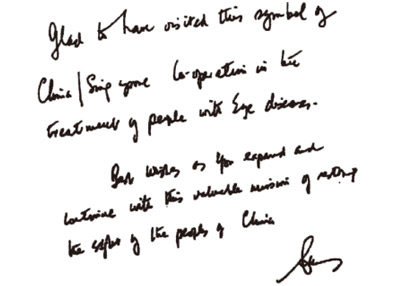 Glad to have visited this symbol of
China/Singapore Co-operation in the
treatment of people with Eye diseases.
Best Wishes as you expand and
continue with this valuable mission of restoring
the sight of the people of China